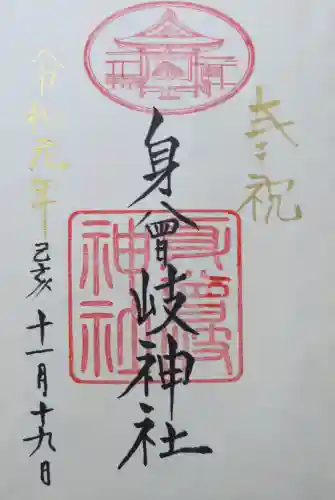 奉祝
身曾岐神社
身曾岐神社
令和元年
己亥
十一月十九日